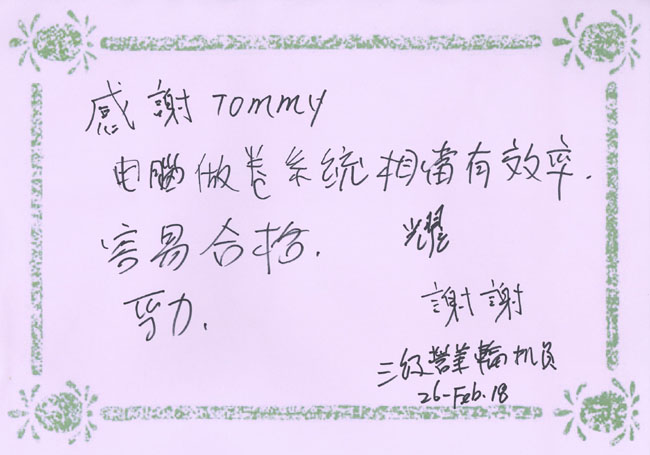 感謝 Tommy
电腦做卷系統相當有效率.
容易合格.
努力.
耀
謝謝
三級營業輪机员
26-Feb.18